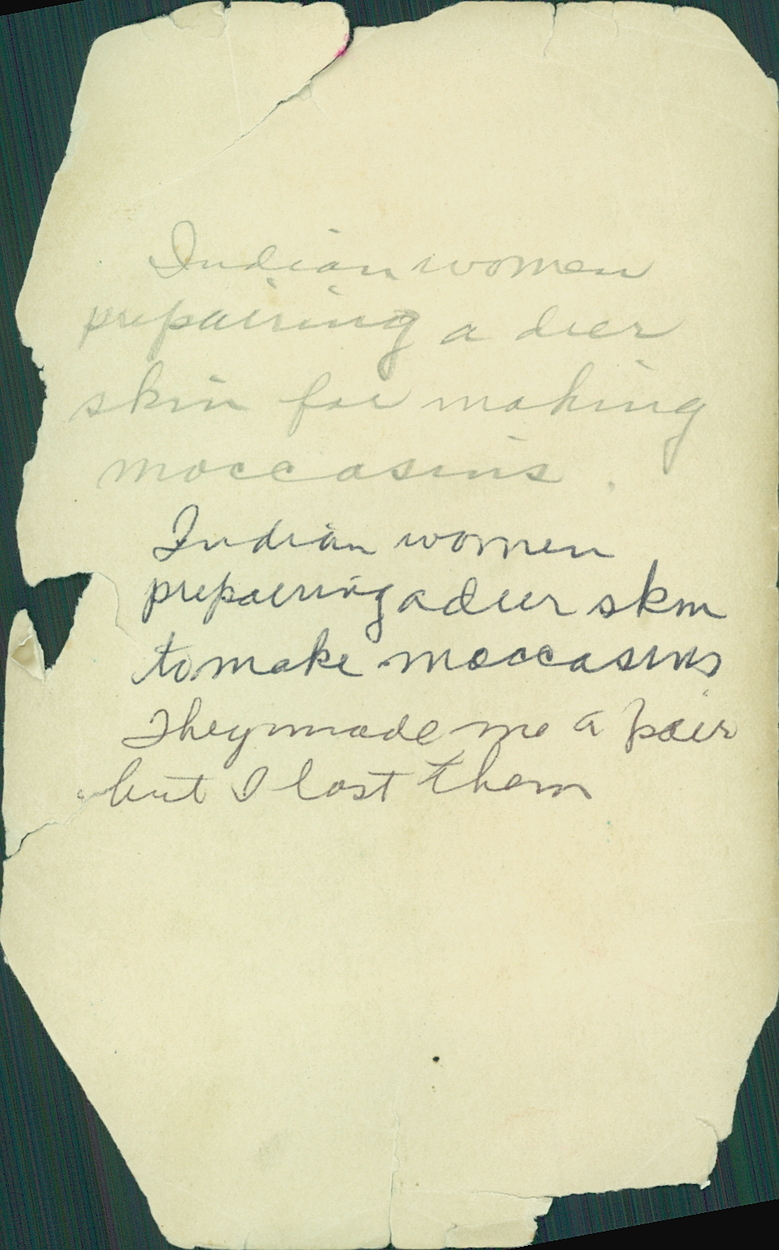 Indian women
prepairing a deer
skin for making
moccasins.
Indian women
prepairing a deer skin
to make moccasins
They made me a pair
but I lost them